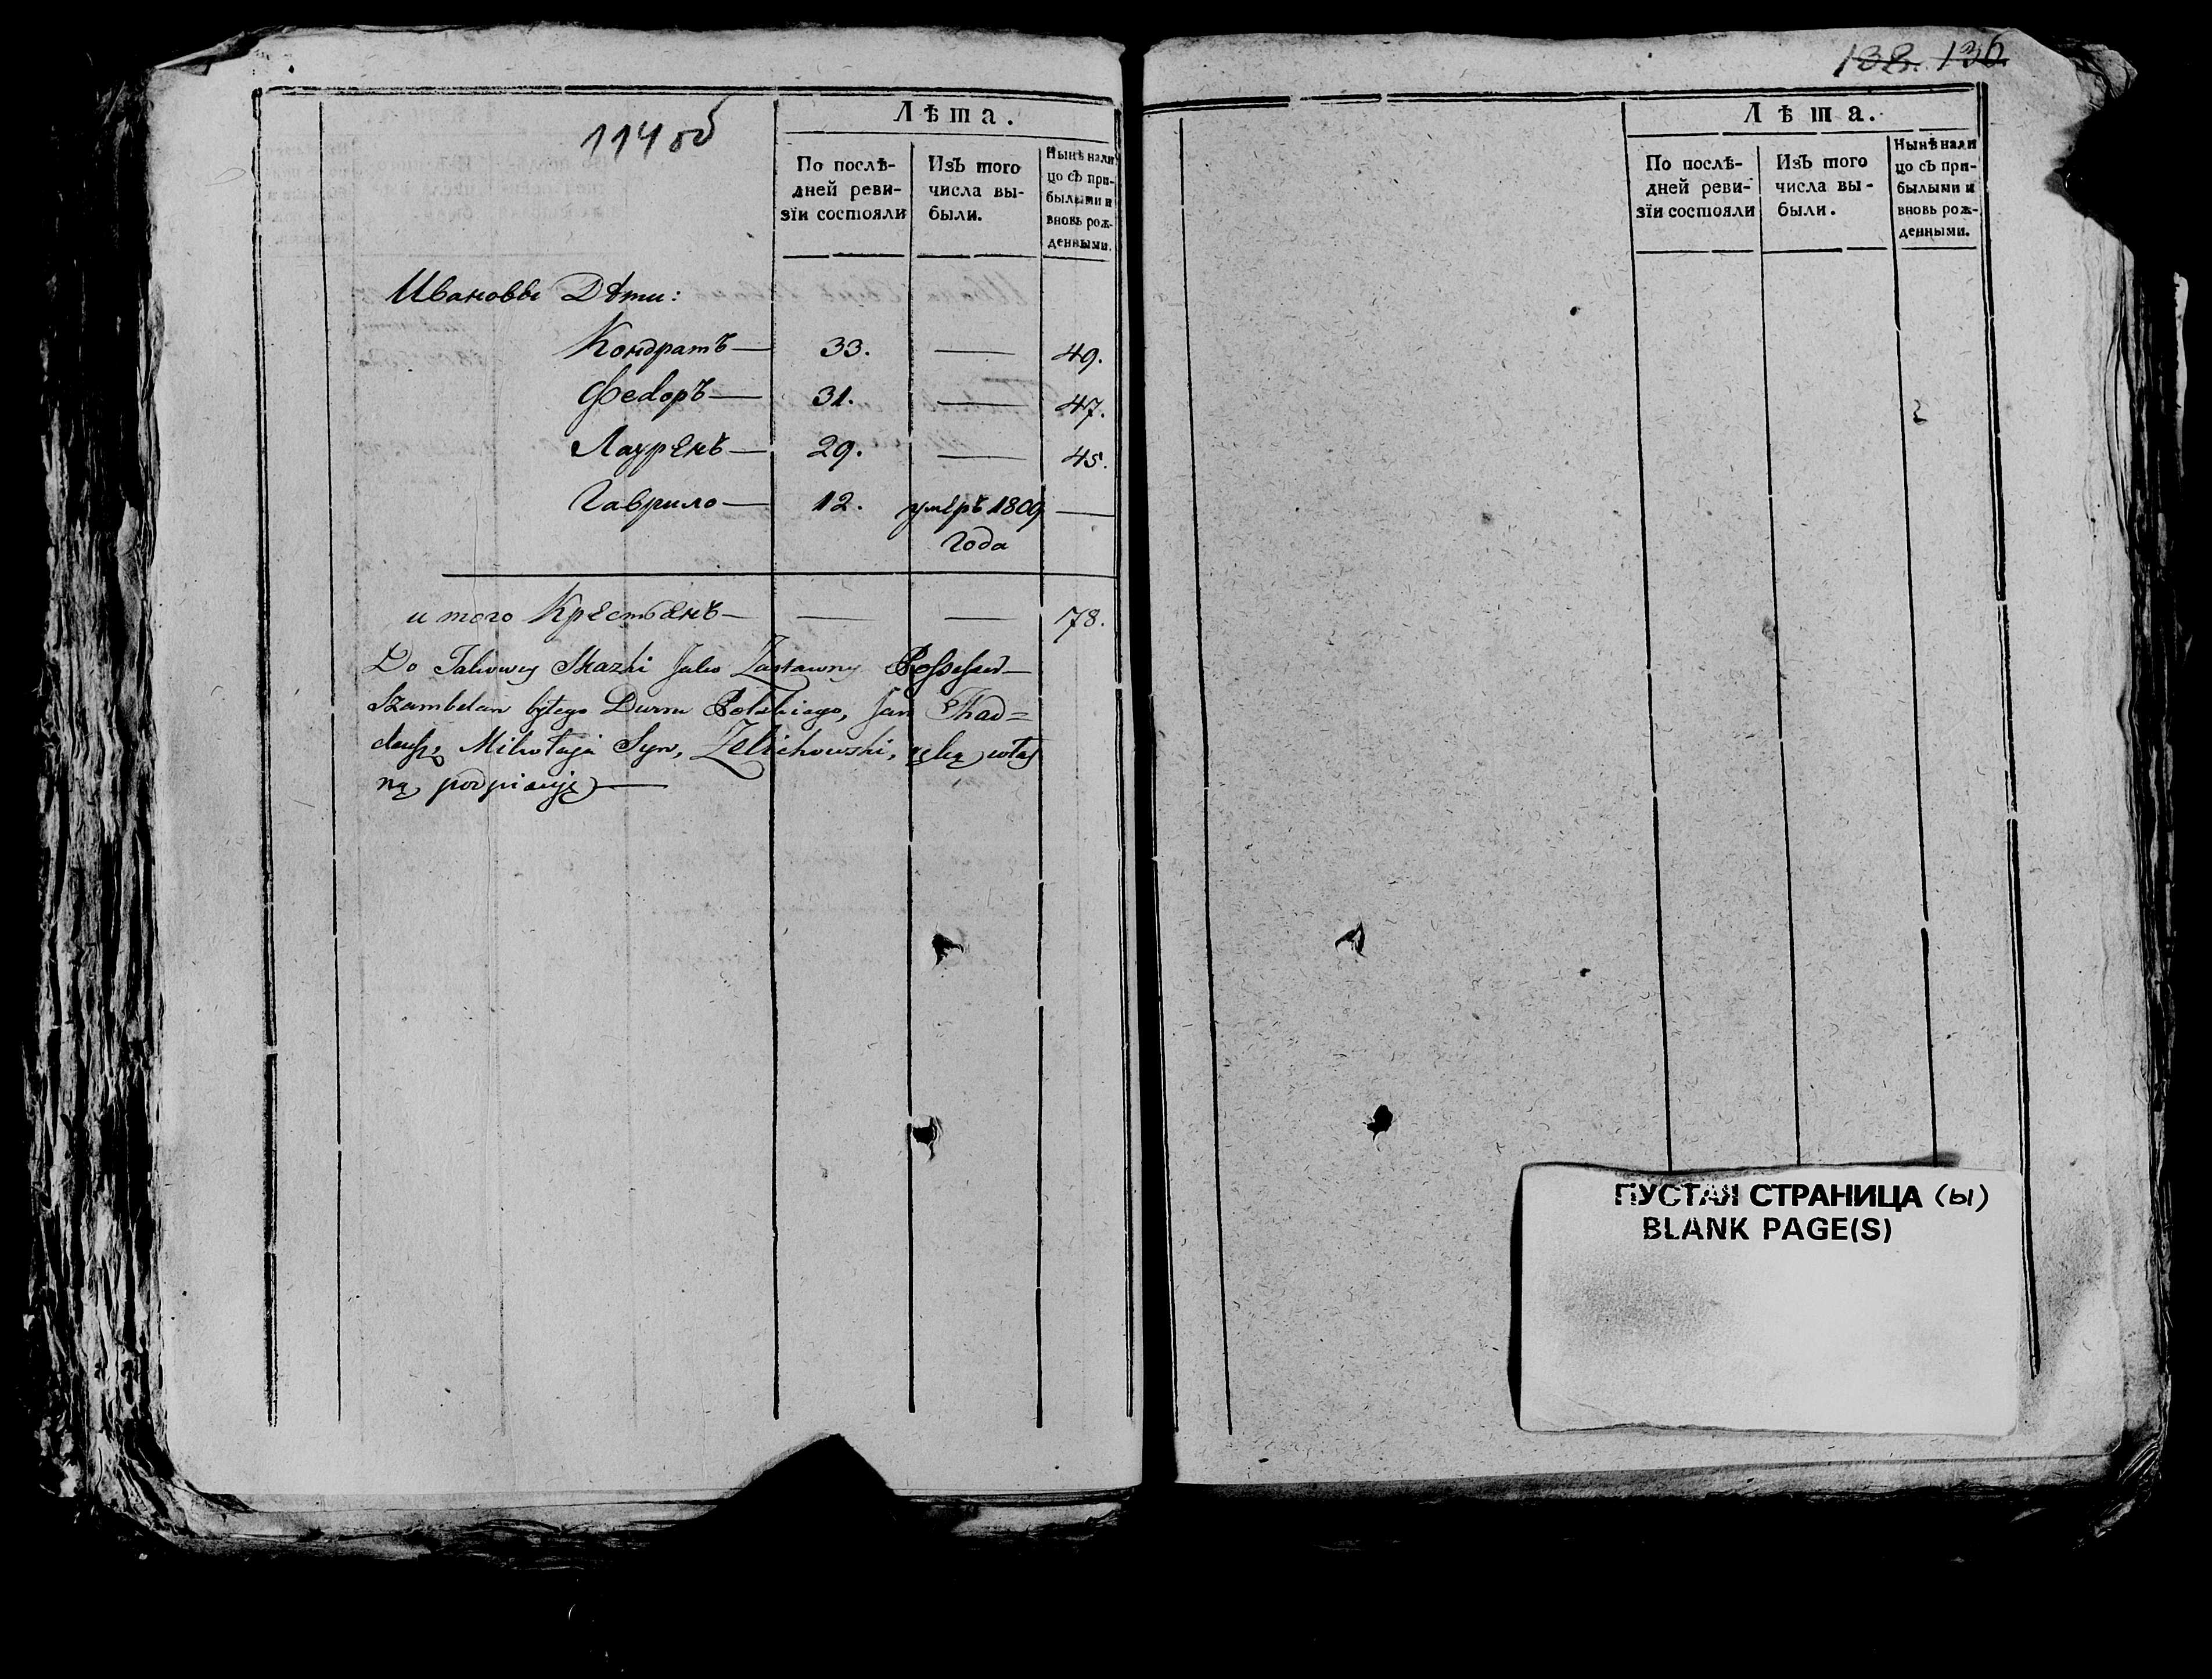 114 об
Лѣта.
По послѣ-
дней реви-
зїи состояли
Изъ того
числа вы-
были.
Нынѣ нали
цо съ при-
былыми и
вновь рож-
денными.
Ивановы Дѣти:
Кондратъ — 33. — 49.
Федоръ — 31. — 47.
Лаурѣнъ — 29. — 45.
Гаврило — 12. умеръ 1809 —
года
и того Крестьянъ — — — 78.
Do Takowey Skazki Jako Zastawny Possessor
Szambelan byłego Dworu Polskiego, Jan Thad=
deusz, Mikołaja Syn, Zelichowski, ręką włas
ną podpisuję —
138. 136.
Лѣта.
По послѣ-
дней реви-
зїи состояли
Изъ того
числа вы-
были.
Нынѣ нали
цо съ при-
былыми и
вновь рож-
денными.
ПУСТАЯ СТРАНИЦА (ы)
BLANK PAGE(S)